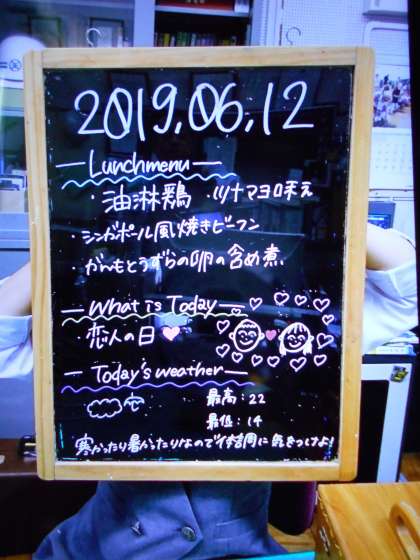 2019.06.12
Lunchmenu
・油淋鶏 ・ツナマヨロネえ
・シンガポール風焼きビーフン
・がんもとうずらの卵の含め煮
What is Today
・恋人の日
Today's weather
最高：22
最低：14
寒かったり暑かったりなので体調に気をつけてよ！